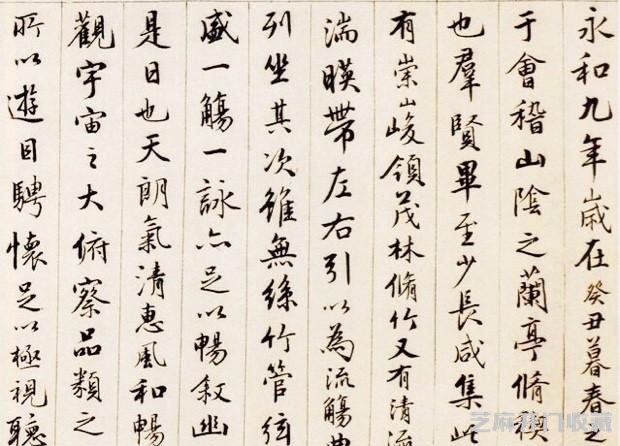 永和九年歲在癸丑暮春之
于會稽山陰之蘭亭脩稧
也羣賢畢至少長咸集此
有崇山峻領茂林脩竹又有清流
湍暎帶左右引以為流觴曲
列坐其次雖無絲竹管弦
盛一觴一詠亦足以暢敘幽
是日也天朗氣清惠風和暢
觀宇宙之大俯察品類之
所以遊目騁懷足以極視聽